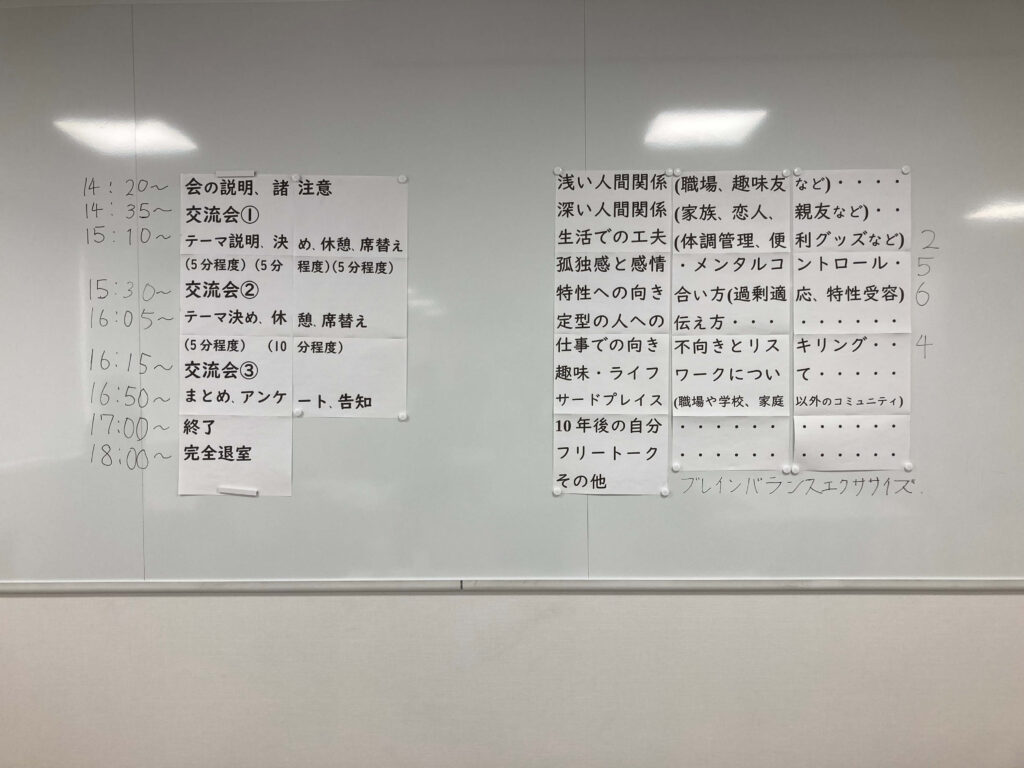 14:20〜 会の説明、諸注意
14:35〜 交流会①
15:10〜 テーマ説明、決め、休憩、席替え
(5分程度)(5分程度)(5分程度)
15:30〜 交流会②
16:05〜 テーマ決め、休憩、席替え
(5分程度) (10分程度)
16:15〜 交流会③
16:50〜 まとめ、アンケート、告知
17:00〜 終了
18:00〜 完全退室
浅い人間関係(職場、趣味友など)・・・・
深い人間関係(家族、恋人、親友など)・・
生活での工夫(体調管理、便利グッズなど) 2
孤独感と感情・メンタルコントロール・ 5
特性への向き合い方(過剰適応、特性受容) 6
定型の人への伝え方・・・・・・・・・
仕事での向き不向きとリスキリング・・ 4
趣味・ライフワークについて・・・・・
サードプレイス(職場や学校、家庭以外のコミュニティ)
10年後の自分・・・・・・・・・・・・
フリートーク・・・・・・・・・・・・
その他 ブレインバランスエクササイズ.